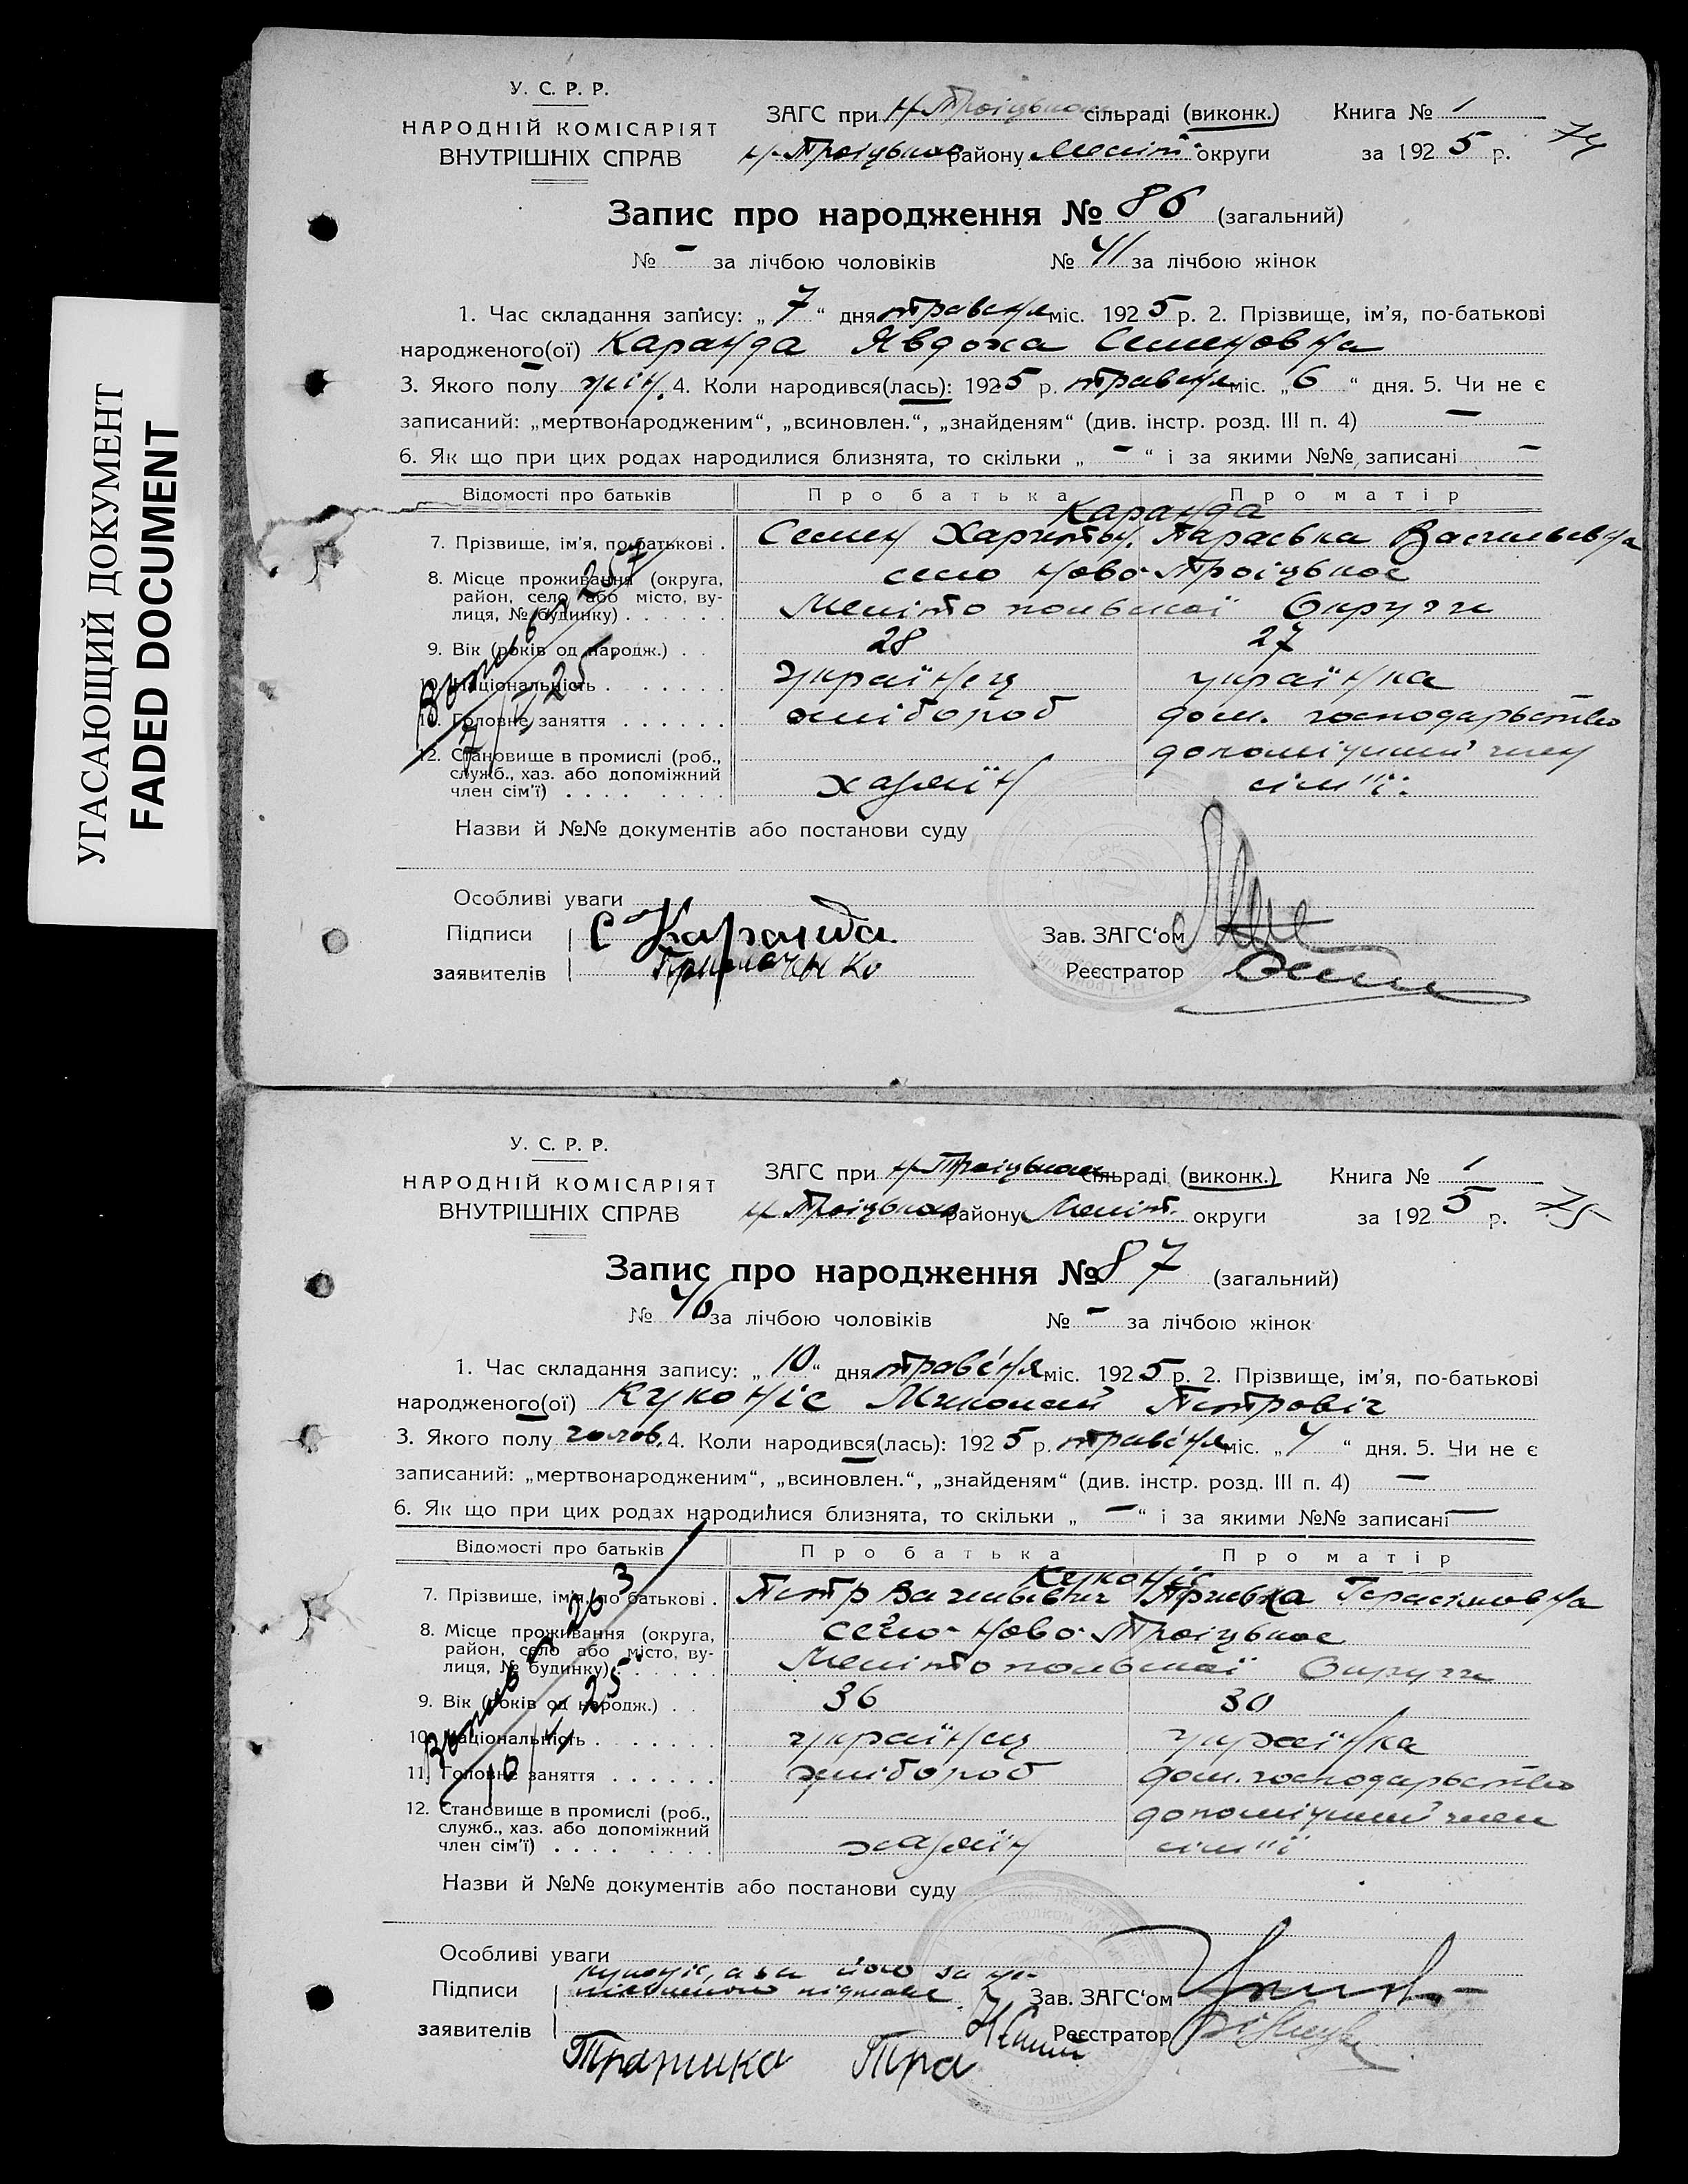 УГАСАЮЩИЙ ДОКУМЕНТ
FADED DOCUMENT
У. С. Р. Р.
НАРОДНІЙ КОМІСАРІЯТ
ВНУТРІШНІХ СПРАВ
ЗАГС при Н-Троіцьком сільраді (виконк.) Книга № 1
Н-Троіцького району Меліт. округи за 1925 р. 74
Запис про народження № 86 (загальний)
№ - за лічбою чоловіків № 41 за лічбою жінок
1. Час складання запису: „7“ дня травня міс. 1925 р. 2. Прізвище, ім'я, по-батькові
народженого(ої) Каранда Явдоха Семеновна
3. Якого полу жін. 4. Коли народився(лась): 1925 р. травня міс. „6“ дня. 5. Чи не є
записаний: „мертвонародженим“, „всиновлен.“, „знайденям“ (див. інстр. розд. III п. 4) —
6. Як що при цих родах народилися близнята, то скільки „-“ і за якими №№ записані -
Відомості про батьків Про батька Про матір
Каранда
7. Прізвище, ім'я, по-батькові . Семен Харитон. Параська Васильевна
8. Місце проживання (округа, район, село або місто, вулиця, № будинку) село Ново-Троіцькое
Мелітопольської Округи
9. Вік (років од народж.) . . 28 27
10. Національність українец українка
11. Головне заняття хлібороб дом. господарьство
12. Становище в промислі (роб., служб., хаз. або допоміжний член сім'ї) хазяїн допоміжний член
сім"ї.
Назви й №№ документів або постанови суду
Особливі уваги
Підписи С Каранда Зав. ЗАГС'ом
заявителів Реєстратор
У. С. Р. Р.
НАРОДНІЙ КОМІСАРІЯТ
ВНУТРІШНІХ СПРАВ
ЗАГС при Н-Троіцьком сільраді (виконк.) Книга № 1
Н-Троіцького району Меліт. округи за 1925 р. 75
Запис про народження № 87 (загальний)
№ 46 за лічбою чоловіків № - за лічбою жінок
1. Час складання запису: „10“ дня травня міс. 1925 р. 2. Прізвище, ім'я, по-батькові
народженого(ої) Куконіс Миколай Петровіч
3. Якого полу чолов. 4. Коли народився(лась): 1925 р. травня міс. „4“ дня. 5. Чи не є
записаний: „мертвонародженим“, „всиновлен.“, „знайденям“ (див. інстр. розд. III п. 4) —
6. Як що при цих родах народилися близнята, то скільки „—“ і за якими №№ записані —
Відомості про батьків Про батька Про матір
Куконіс
7. Прізвище, ім'я, по-батькові . Петр Васильевич Герасімовна
8. Місце проживання (округа, район, село або місто, вулиця, № будинку) село-Ново-Троіцькое
Мелітопольської Округи
9. Вік (років од народж.) . . 36 30
10. Національність українец українка
11. Головне заняття хлібороб дом. господарьство
12. Становище в промислі (роб., служб., хаз. або допоміжний член сім'ї) хазяїн допоміжний член
сім"ї
Назви й №№ документів або постанови суду
Особливі уваги
Підписи Зав. ЗАГС'ом
заявителів Реєстратор